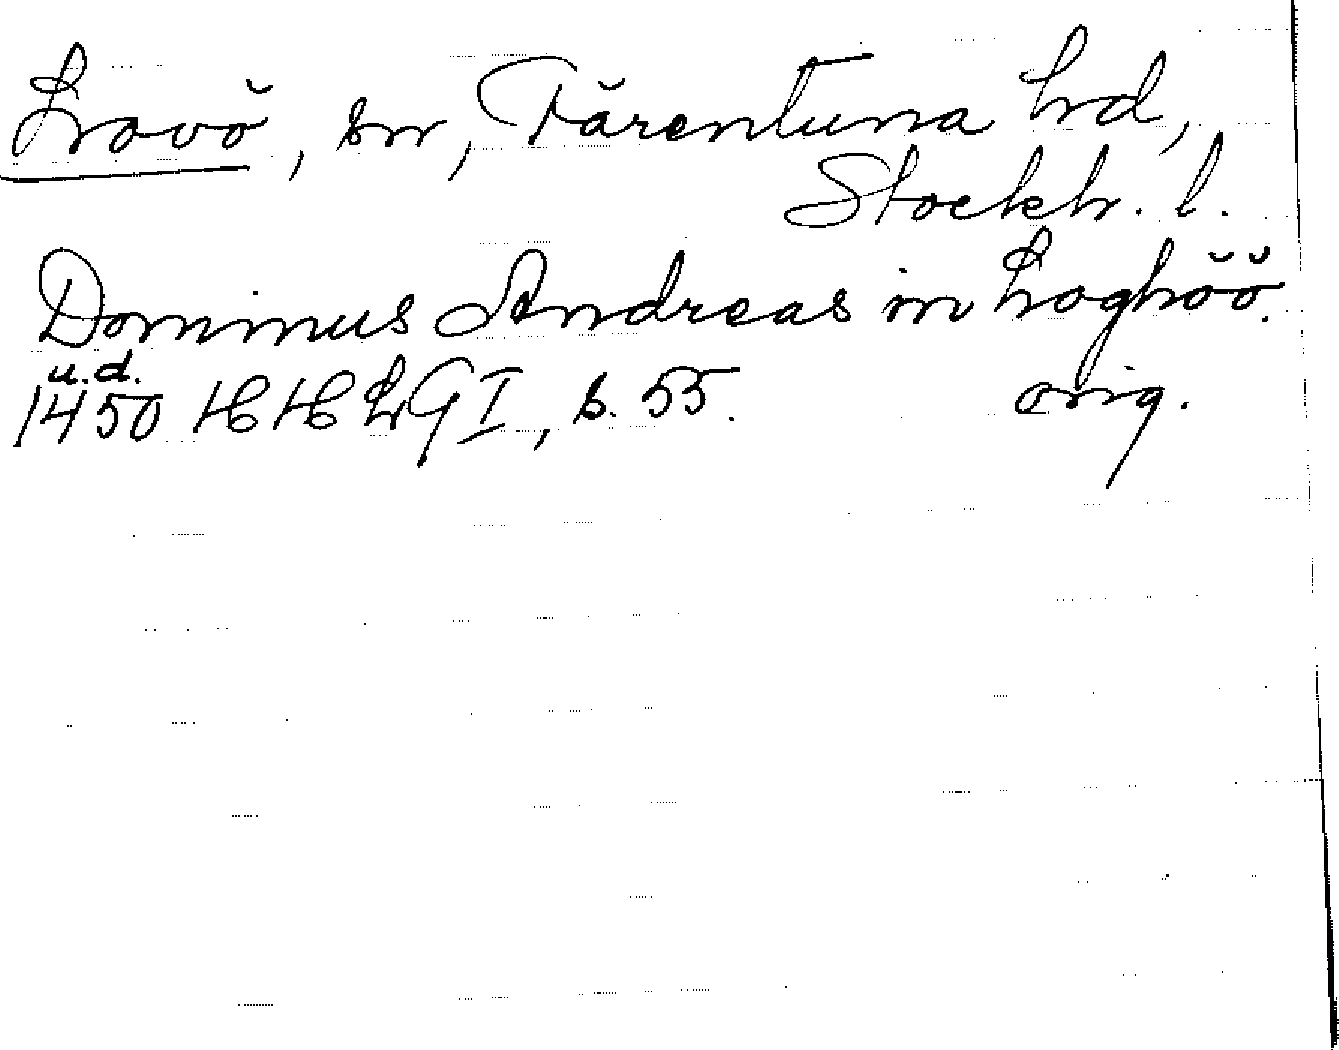 Lovö, sn, Färentuna hd,
Stockh. l.
Dominus Andreas in Loghöö.
u.d.
1450 HH LG I, s. 55. orig.